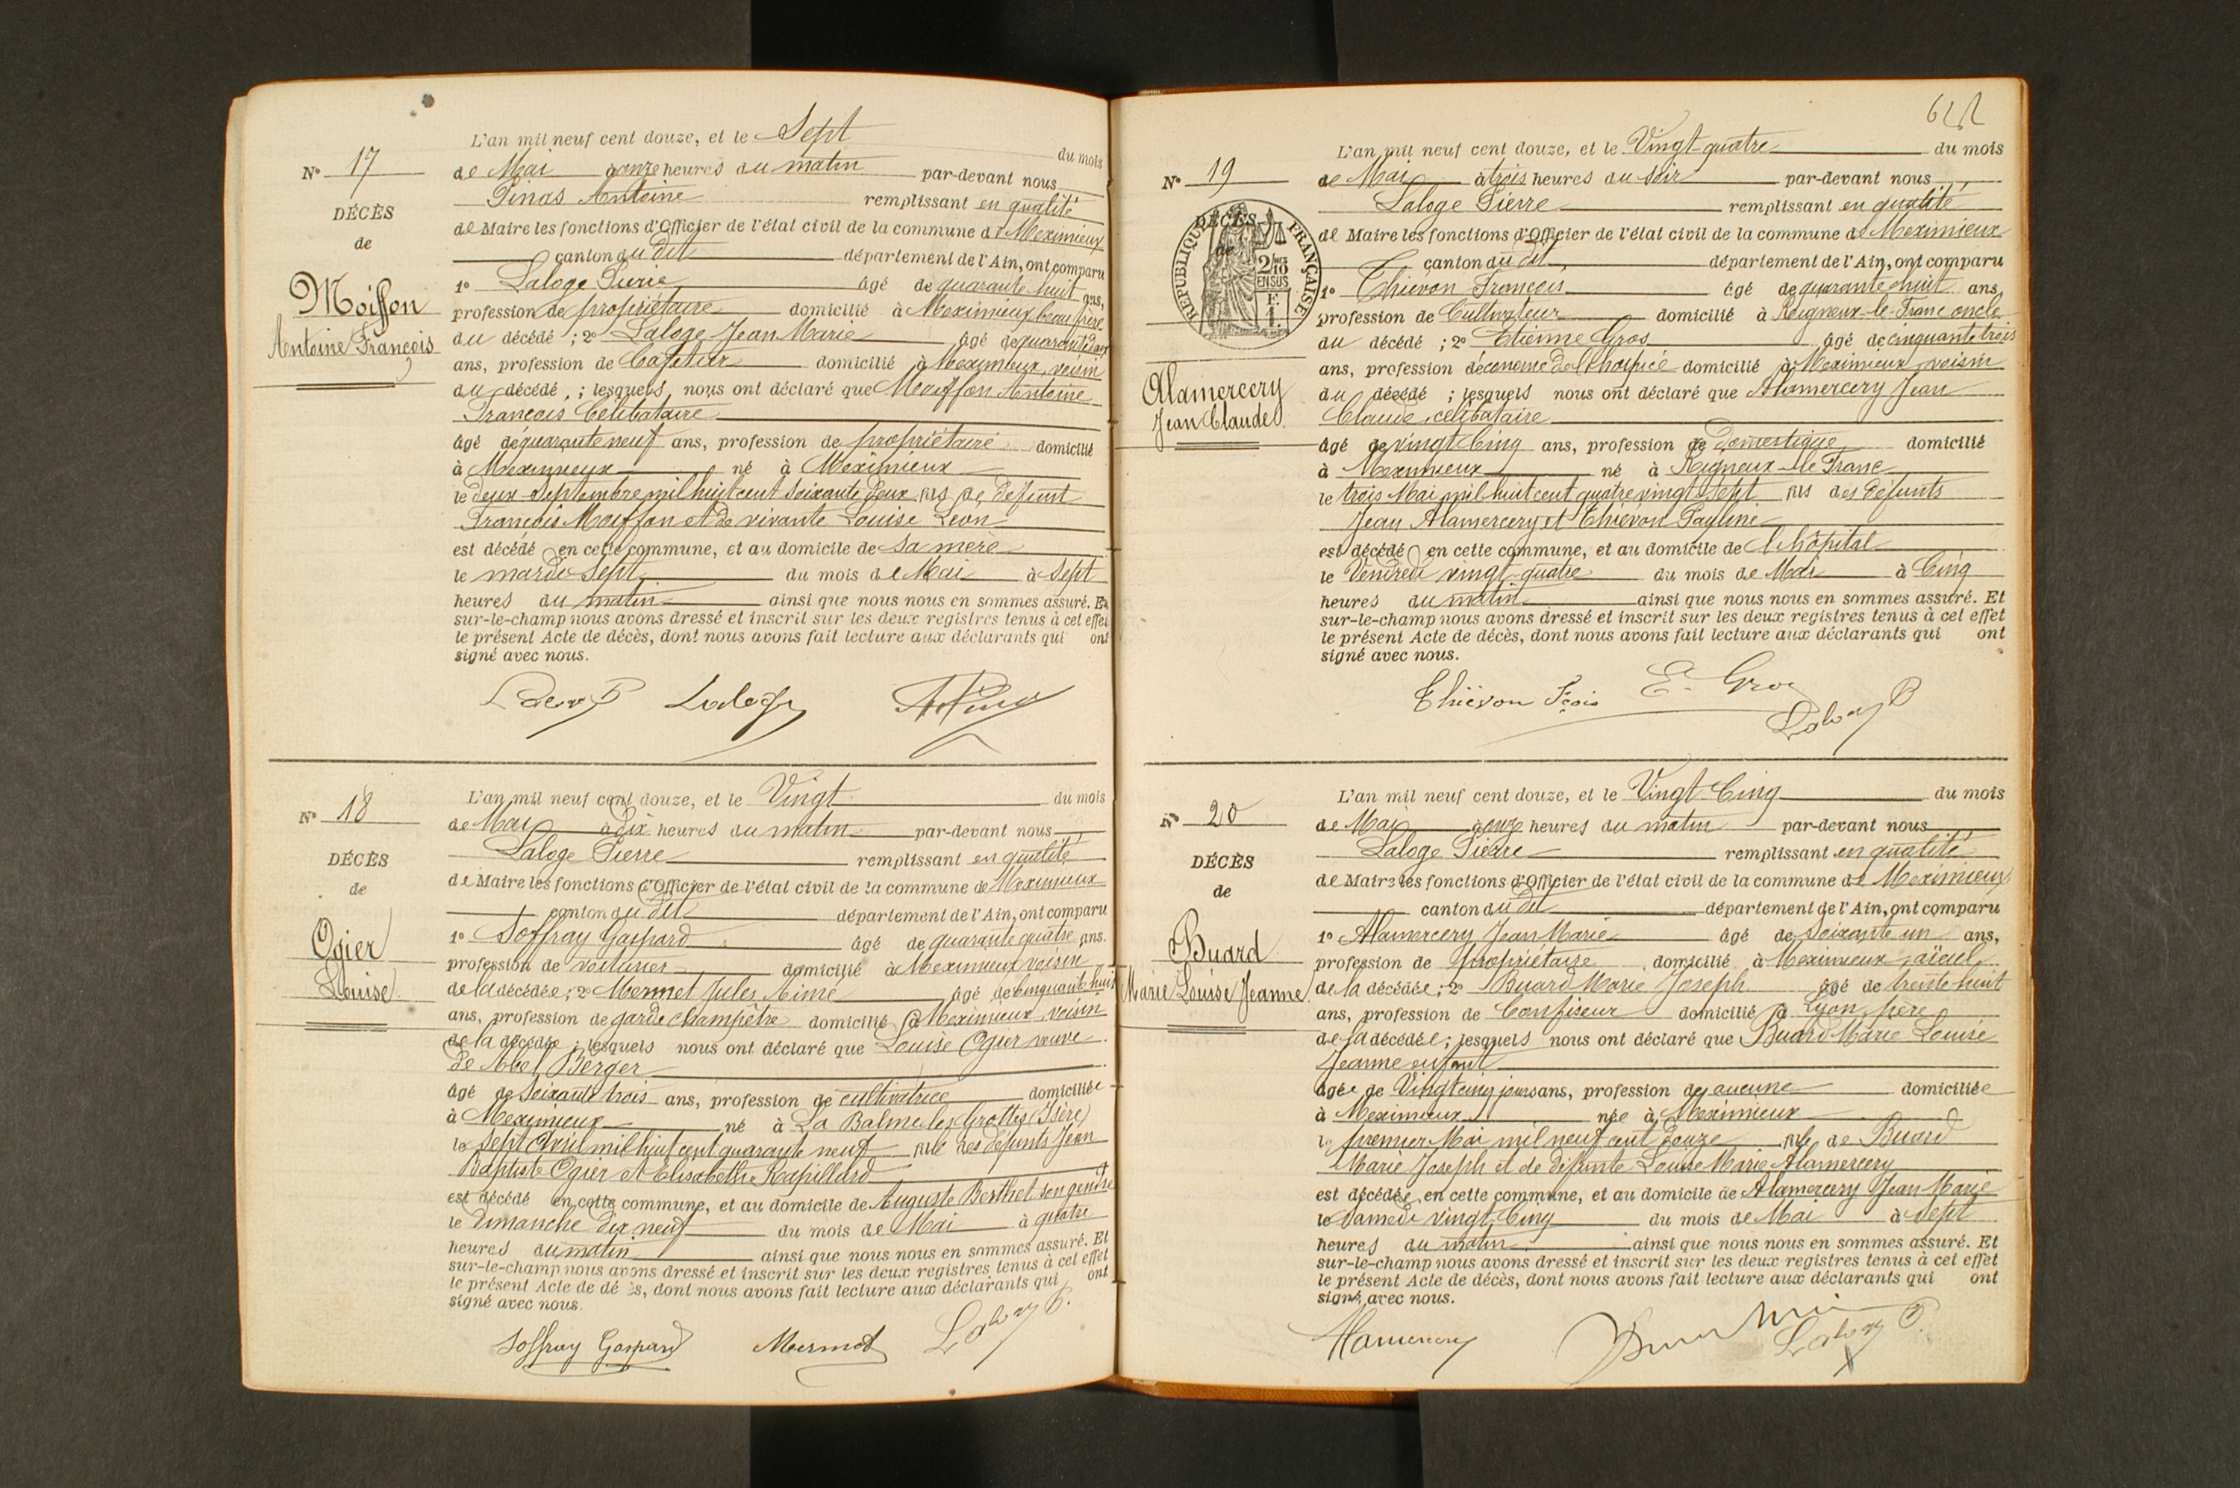 L'an mil neuf cent douze, et le Sept du mois
N° 17
de Mai à onze heures du matin par-devant nous
Pinas Antoine remplissant en qualité
DÉCÈS
de Maire les fonctions d'Officier de l'état civil de la commune de Meximieux
de
canton du dit département de l'Ain, ont comparu
1° Laloge Pierre âgé de quarante huit ans,
Moiffon
profession de propriétaire domicilié à Meximieux beau frère
Antoine François
du décédé ; 2° Laloge Jean Marie âgé de quarante deux
ans, profession de Cafetier domicilié à Meximieux, voisin
du décédé, ; lesquels nous ont déclaré que Moiffon Antoine
François Célibataire
âgé de quarante neuf ans, profession de propriétaire domicilié
à Meximieux né à Meximieux
le deux Septembre mil huit cent soixante deux fils de défunt
François Moiffon et de vivante Louise Léon
est décédé en cette commune, et au domicile de sa mère
le mardi Sept du mois de Mai à Sept
heures du matin ainsi que nous nous en sommes assuré. Et
sur-le-champ nous avons dressé et inscrit sur les deux registres tenus à cet effet
le présent Acte de décès, dont nous avons fait lecture aux déclarants qui ont
signé avec nous.
L'an mil neuf cent douze, et le Vingt du mois
N° 18
de Mai à Dix heures du matin par-devant nous
Laloge Pierre remplissant en qualité
DÉCÈS
de Maire les fonctions d'Officier de l'état civil de la commune de Meximieux
de
canton du dit département de l'Ain, ont comparu
Ogier
1° Soffray Gaspard âgé de quarante quatre ans.
profession de voiturier domicilié à Meximieux voisin
Louise
de la décédée ; 2° Mermet Jules Aimé âgé de cinquante huit
ans, profession de garde champêtre domicilié à Meximieux, voisin
de la décédée ; lesquels nous ont déclaré que Louise Ogier veuve
de Abel Berger
âgé de soixante trois ans, profession de cultivatrice domiciliée
à Meximieux né à La Balme les Grottes (Isère)
le sept Avril mil huit cent quarante neuf fille des défunts Jean
Baptiste Ogier et Elisabeth Rapillard
est décédé en cette commune, et au domicile de Auguste Berthet son gendre
le Dimanche dix neuf du mois de Mai à quatre
heures du matin ainsi que nous nous en sommes assuré. Et
sur-le-champ nous avons dressé et inscrit sur les deux registres tenus à cet effet
le présent Acte de dé ès, dont nous avons fait lecture aux déclarants qui ont
signé avec nous.
Soffray Gaspard Mermet Laloge P.
L'an mil neuf cent douze, et le Vingt quatre du mois
N° 19
de Mai à trois heures du soir par-devant nous
Laloge Pierre remplissant en qualité
DÉCÈS
de Maire les fonctions d'Officier de l'état civil de la commune de Meximieux
de
RÉPUBLIQUE FRANÇAISE
2/10 EN SUS
F. 1.
canton du dit, département de l'Ain, ont comparu
1° Thiévon François âgé de quarante huit ans,
profession de Cultivateur domicilié à Rigneux-le-Franc oncle
du décédé ; 2° Etienne Gros âgé de cinquante trois
Alamercery
ans, profession d'économe de l'hospice domicilié à Meximieux, voisin
Jean Claude
du décédé ; lesquels nous ont déclaré que Alamercery Jean
Claude, célibataire
âgé de vingt Cinq ans, profession de domestique domicilié
à Meximieux né à Rigneux-le-Franc
le trois Mai mil huit cent quatre vingt sept fils des défunts
Jean Alamercery et Thiévon Pauline
est décédé en cette commune, et au domicile de l'hôpital
le Vendredi vingt quatre du mois de Mai à Cinq
heures du matin ainsi que nous nous en sommes assuré. Et
sur-le-champ nous avons dressé et inscrit sur les deux registres tenus à cet effet
le présent Acte de décès, dont nous avons fait lecture aux déclarants qui ont
signé avec nous.
Thiévon Fçois E. Gros Laloge P
L'an mil neuf cent douze, et le Vingt Cinq du mois
N° 20
de Mai à onze heures du matin par-devant nous
Laloge Pierre remplissant en qualité
DÉCÈS
de Maire les fonctions d'Officier de l'état civil de la commune de Meximieux
de
canton du dit département de l'Ain, ont comparu
Buard
1° Alamercery Jean Marie âgé de soixante un ans,
profession de propriétaire domicilié à Meximieux, aïeul
Marie Louise Jeanne
de la décédée ; 2° Buard Marie Joseph âgé de trente huit
ans, profession de Confiseur domicilié à Lyon, père
de la décédée ; lesquels nous ont déclaré que Buard Marie Louise
Jeanne enfant
âgée de Vingt cinq jours ans, profession de aucune domiciliée
à Meximieux née à Meximieux
le premier Mai mil neuf cent douze fille de Buard
Marie Joseph et de défunte Louise Marie Alamercery
est décédée en cette commune, et au domicile de Alamercery Jean Marie
le Samedi vingt Cinq du mois de Mai à Sept
heures du matin ainsi que nous nous en sommes assuré. Et
sur-le-champ nous avons dressé et inscrit sur les deux registres tenus à cet effet
le présent Acte de décès, dont nous avons fait lecture aux déclarants qui ont
signé avec nous.
Alamercery Laloge P.